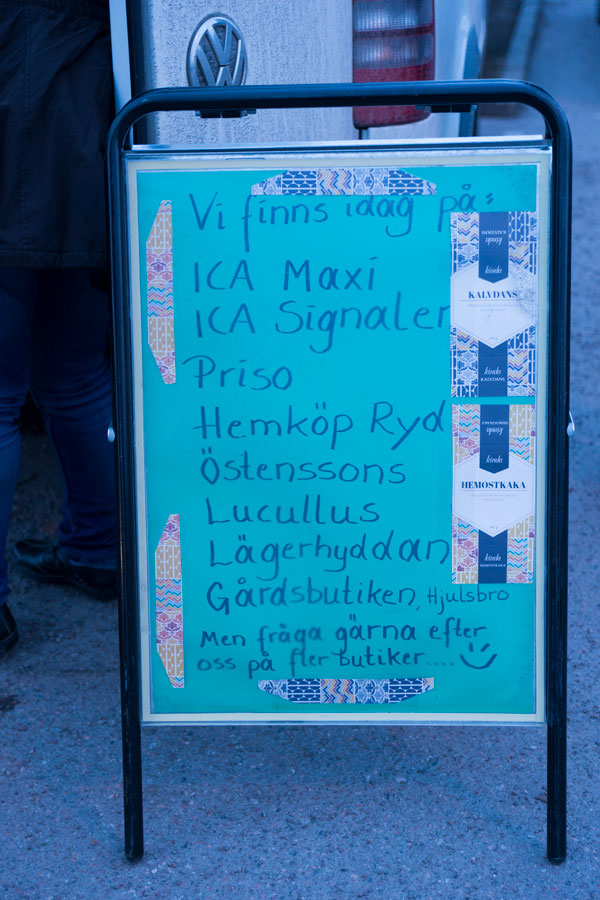 Vi finns idag på:
ICA Maxi
ICA Signalen
Priso
Hemköp Ryd
Östenssons
Lucullus
Lägerhyddan
Gårdsbutiken, Hjulsbro
Men fråga gärna efter
oss på fler butiker....
KALVDANS
kinda
kinda
KALVDANS
kinda
KALVDANS
HEMOSTKAKA
kinda
kinda
HEMOSTKAKA
kinda
HEMOSTKAKA